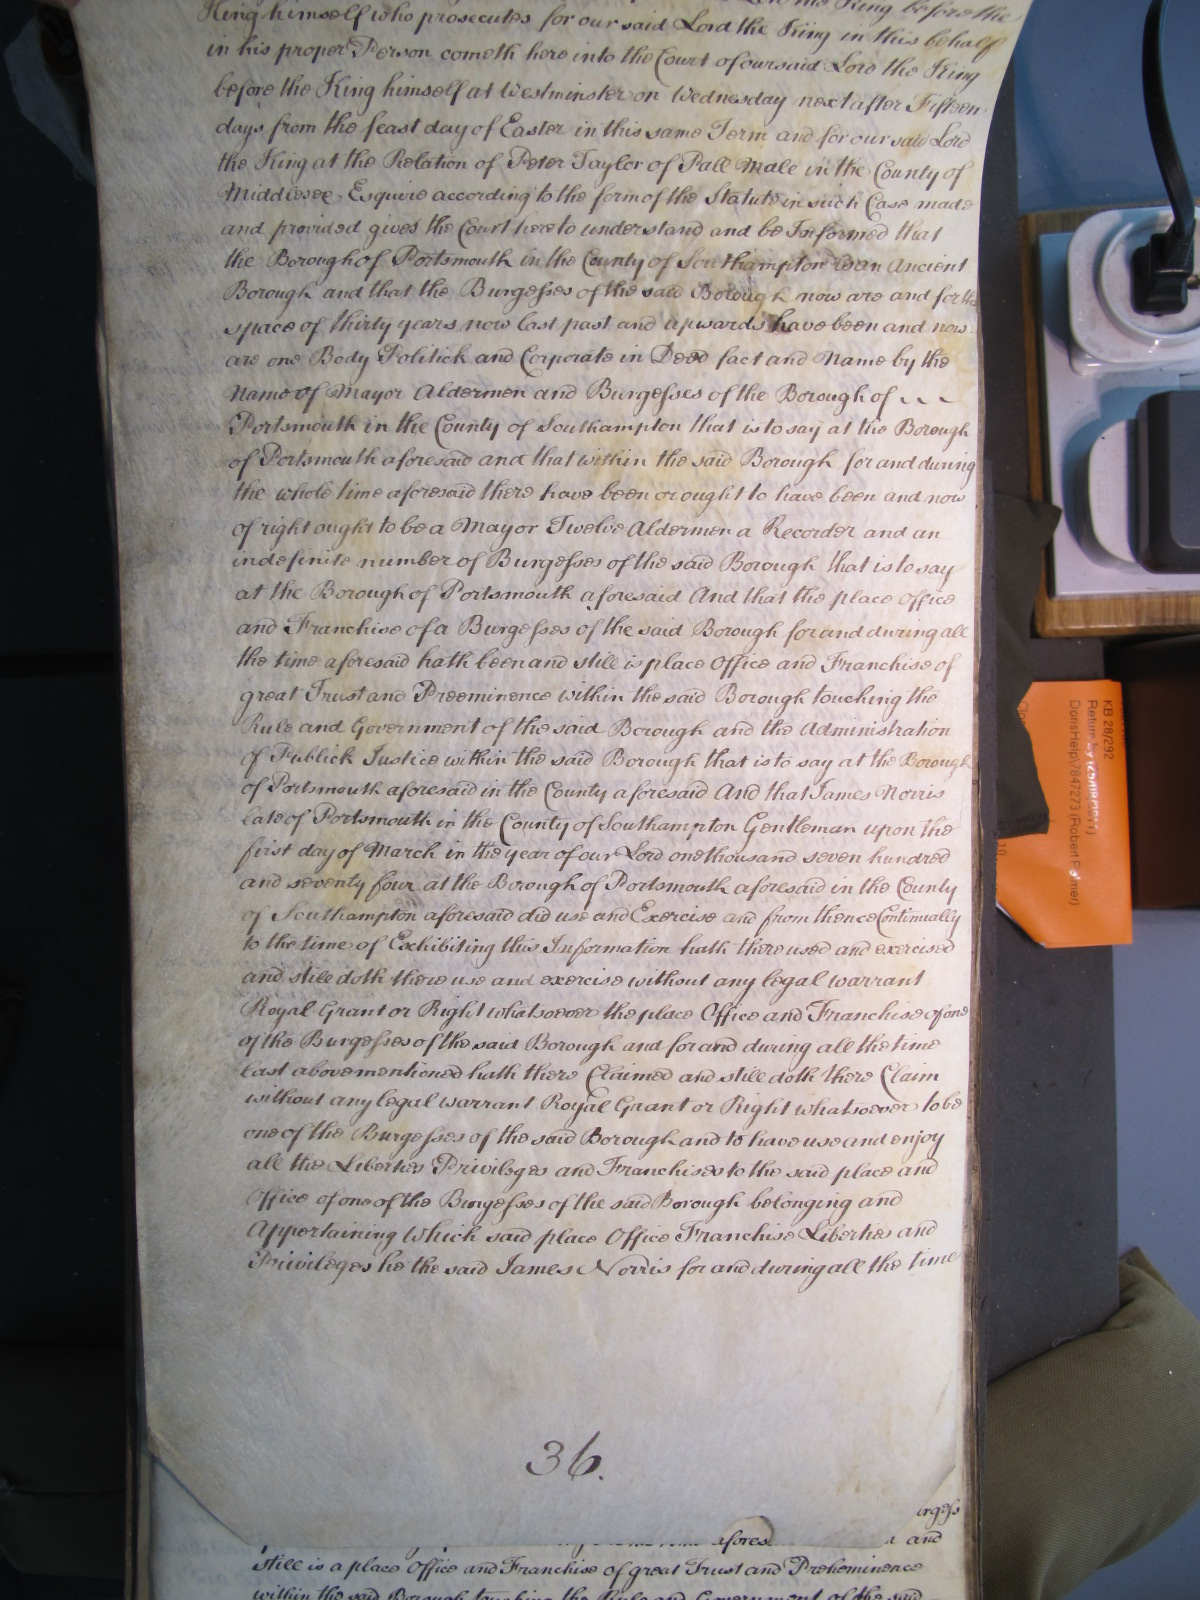 King before the
King himself who prosecutes for our said Lord the King in this behalf
in his proper Person cometh here into the Court of our said Lord the King
before the King himself at Westminster on Wednesday next after Fifteen
days from the feast day of Easter in this same Term and for our said Lord
the King at the Relation of Peter Taylor of Pall Male in the County of
Middlesex Esquire according to the form of the Statute in such Case made
and provided gives the Court here to understand and be Informed that
the Borough of Portsmouth in the County of Southampton is an Ancient
Borough and that the Burgesses of the said Borough now are and for the
space of thirty years now last past and upwards have been and now
are one Body Politick and Corporate in Deed fact and Name by the
Name of Mayor Aldermen and Burgesses of the Borough of
Portsmouth in the County of Southampton that is to say at the Borough
of Portsmouth aforesaid and that within the said Borough for and during
the whole time aforesaid there have been or ought to have been and now
of right ought to be a Mayor Twelve Aldermen a Recorder and an
indefinite number of Burgesses of the said Borough that is to say
at the Borough of Portsmouth aforesaid And that the place office
and Franchise of a Burgesses of the said Borough for and during all
the time aforesaid hath been and still is place Office and Franchise of
great Trust and Preeminence within the said Borough touching the
Rule and Government of the said Borough and the Administration
of Publick Justice within the said Borough that is to say at the Borough
of Portsmouth aforesaid in the County aforesaid And that James Norris
late of Portsmouth in the County of Southampton Gentleman upon the
first day of March in the year of our Lord one thousand seven hundred
and seventy four at the Borough of Portsmouth aforesaid in the County
of Southampton aforesaid did use and Exercise and from thence Continually
to the time of Exhibiting this Information hath there used and exercised
and still doth there use and exercise without any legal warrant
Royal Grant or Right whatsoever the place Office and Franchise of one
of the Burgesses of the said Borough and for and during all the time
last abovementioned hath there Claimed and still doth there Claim
without any legal warrant Royal Grant or Right whatsoever to be
one of the Burgesses of the said Borough and to have use and enjoy
all the Liberties Privileges and Franchises to the said place and
Office of one of the Burgesses of the said Borough belonging and
Appertaining Which said place Office Franchise Liberties and
Privileges he the said James Norris for and during all the time
36.
urgess
afores and
still is a place Office and Franchise of great Trust and Preheminence
within the said Borough touching the Rule and Government of the said
KB 28/292
Return by (25/08/2011)
DorisHelp\V847273 (Robert Palmer)